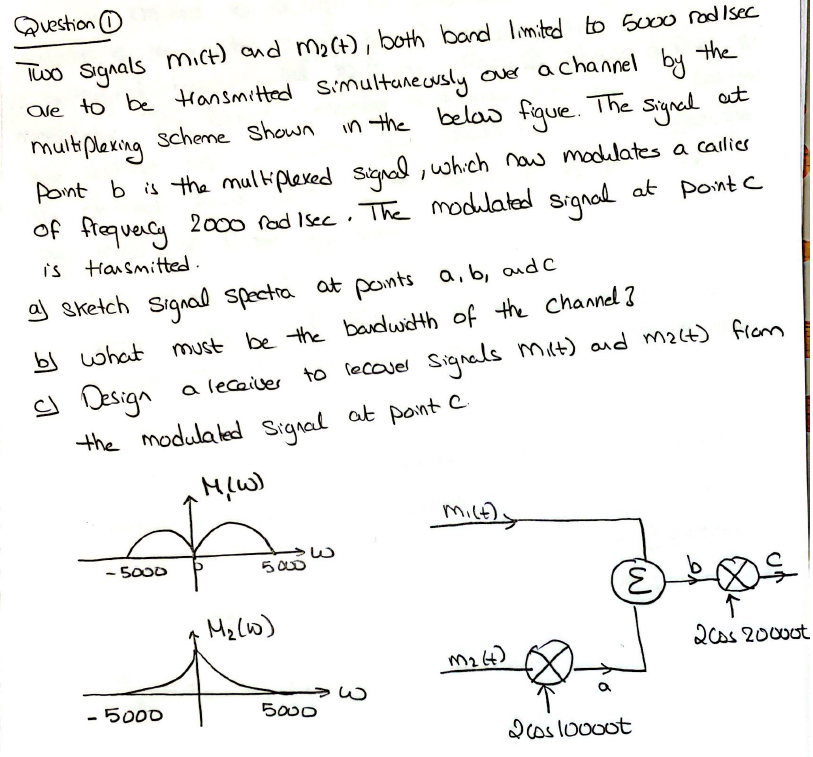 Question ①
Two signals m₁(t) and m₂(t), both band limited to 5000 rad/sec
are to be transmitted simultaneously over a channel by the
multiplexing scheme shown in the below figure. The signal at
point b is the multiplexed signal, which now modulates a carrier
of frequency 2000 rad/sec. The modulated signal at point C
is transmitted.
a) Sketch signal spectra at points a, b, and c
b) what must be the bandwidth of the channel?
c) Design a receiver to recover signals m₁(t) and m₂(t) from
the modulated signal at point C.
M₁(ω)
-5000
0
5000
ω
M₂(ω)
-5000
5000
ω
m₁(t)
Σ
b
c
2cos 20000t
m₂(t)
a
2cos10000t